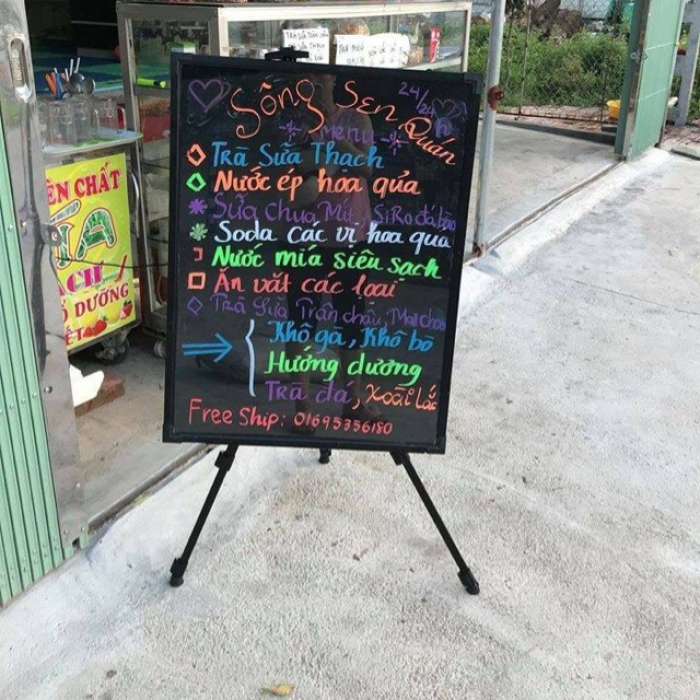 Sông Sen Quán
24/24h
Menu
Trà Sữa Thạch
Nước ép hoa quả
Sữa chua Mít, SiRo đá bào
Soda các vị hoa quả
Nước mía siêu sạch
Ăn vắt các loại
Trà Sữa Trân châu, Matcha
Khô gà, Khô bò
Hướng dương
Trà đá, Xoài Lắc
Free Ship: 01695356180
ÊN CHẤT
ÍA
ẠCH
DƯỠNG